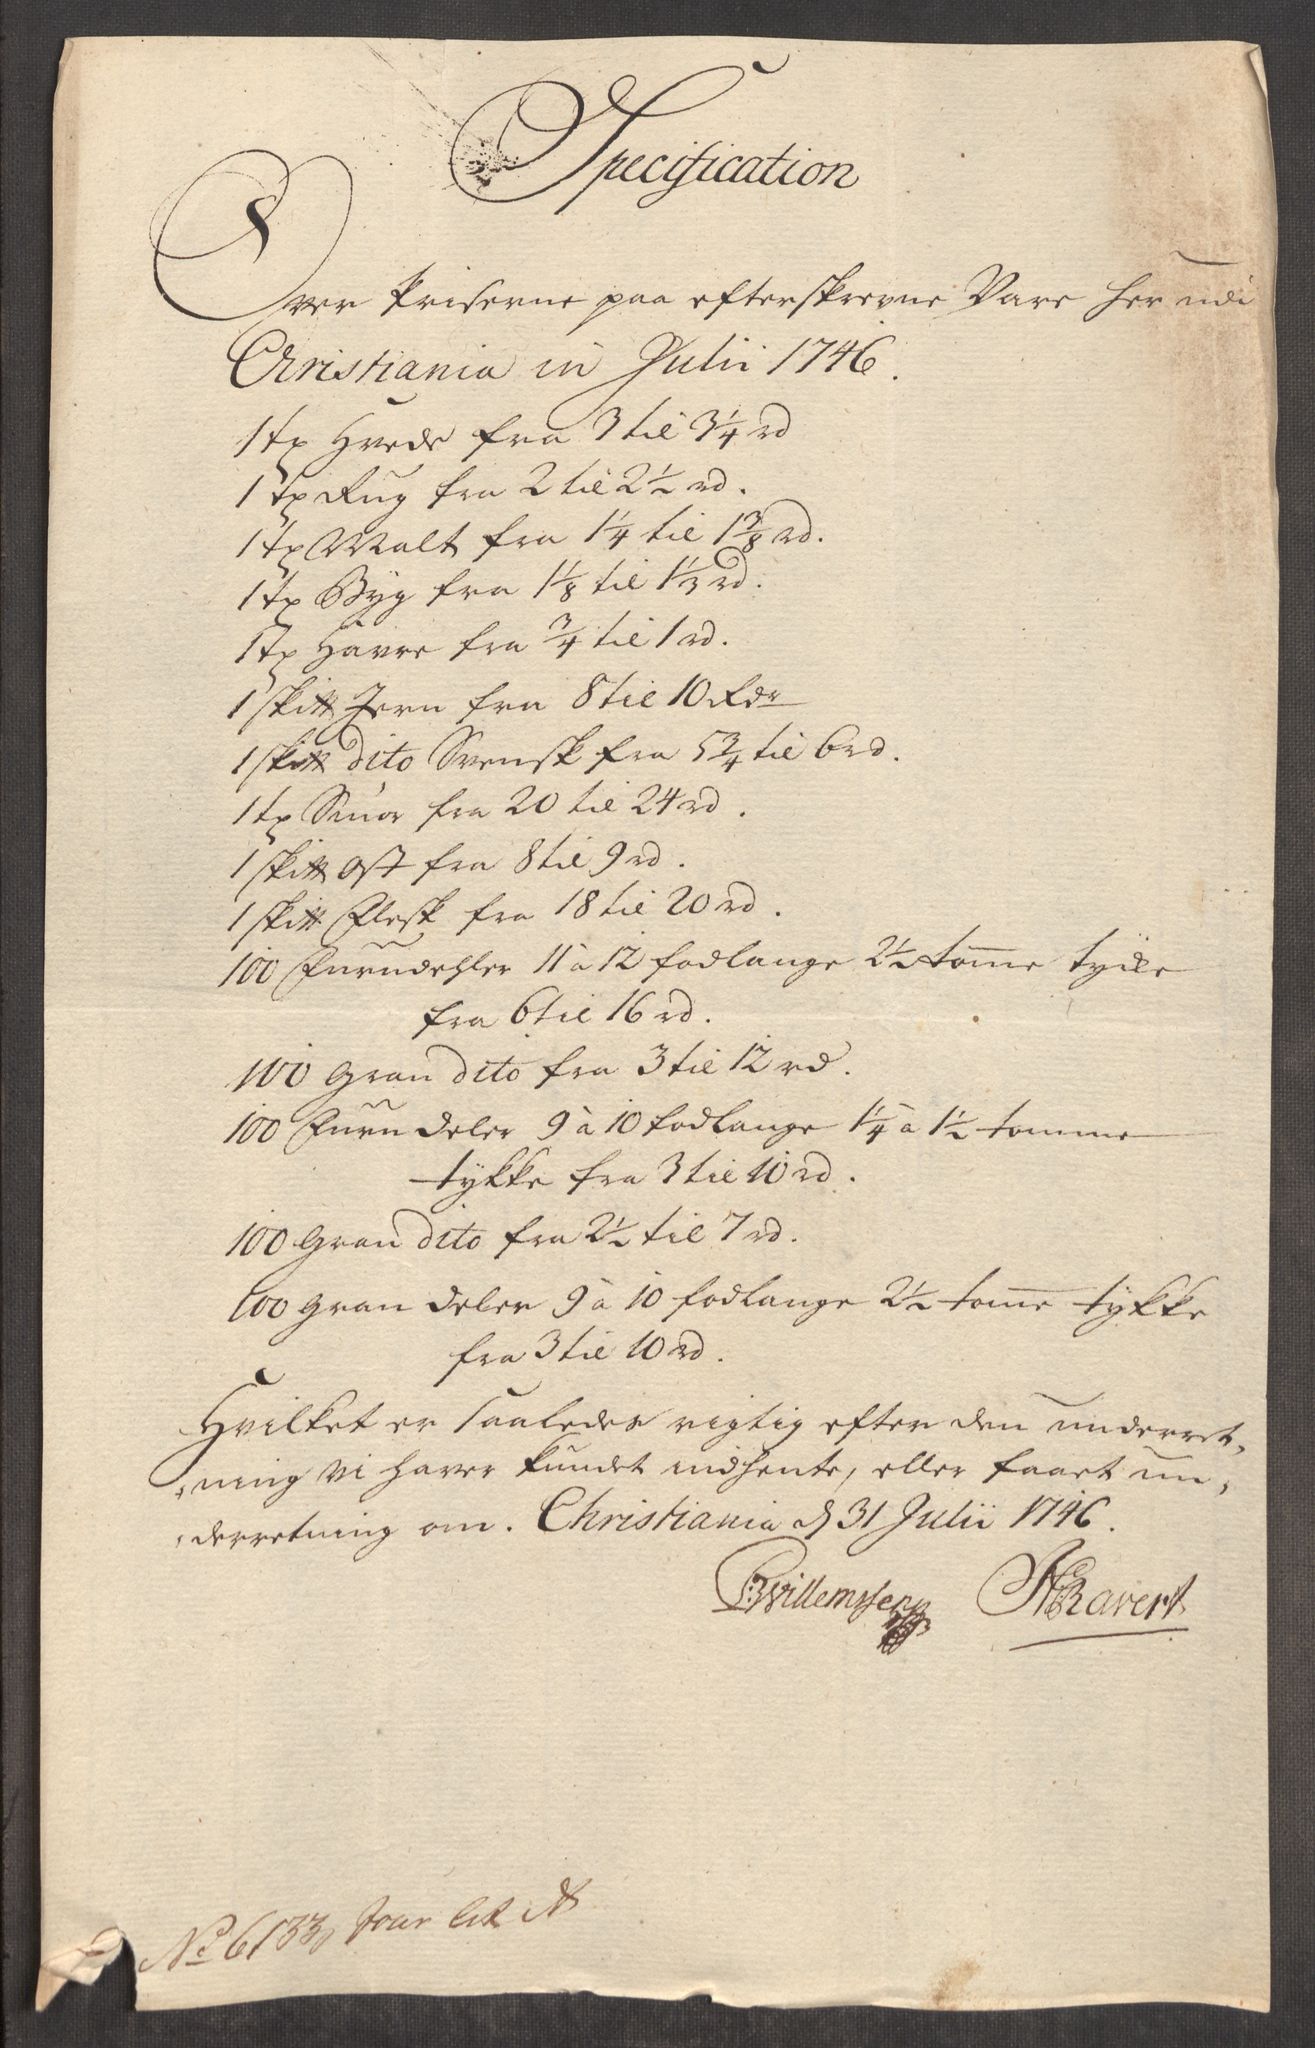 Specification
Over Priserne paa efterskrevne Vare her udi
Christiania in Julii 1746.
1 tø Hvede fra 3 til 3 1/4 rd
1 tø Rug fra 2 til 2 1/2 rd.
1 tø Malt fra 1 1/4 til 1 3/8 rd.
1 tø Byg fra 1 1/8 til 1 1/3 rd.
1 tø Havre fra 3/4 til 1 rd.
1 skitt Jern fra 8 til 10 Rdr
1 skitt dito Svensk fra 5 3/4 til 6 rd.
1 tø Smør fra 20 til 24 rd.
1 skitt Ost fra 8 til 9 rd.
1 skitt Flesk fra 18 til 20 rd.
100 Furudehler 11 a 12 fodlange 2 1/2 tom̅e tycke
fra 6 til 16 rd.
100 Gran dito fra 3 til 12 rd.
100 Furu deler 9 à 10 fodlange 1 1/4 a 1 1/2 tomme
tykke fra 3 til 10 rd.
100 Gran dito fra 2 1/2 til 7 rd.
100 Gran deler 9 à 10 fodlange 2 1/2 tom̅e tykke
fra 3 til 10 rd.
Hvilket er saaledes rigtig efter den underret,
,ning vi haver kundet indhente, eller faaet un,
,derretning om. Christiania d 31 Julii 1746.
Willemssen Ravert
No 6133 Jour Lit A